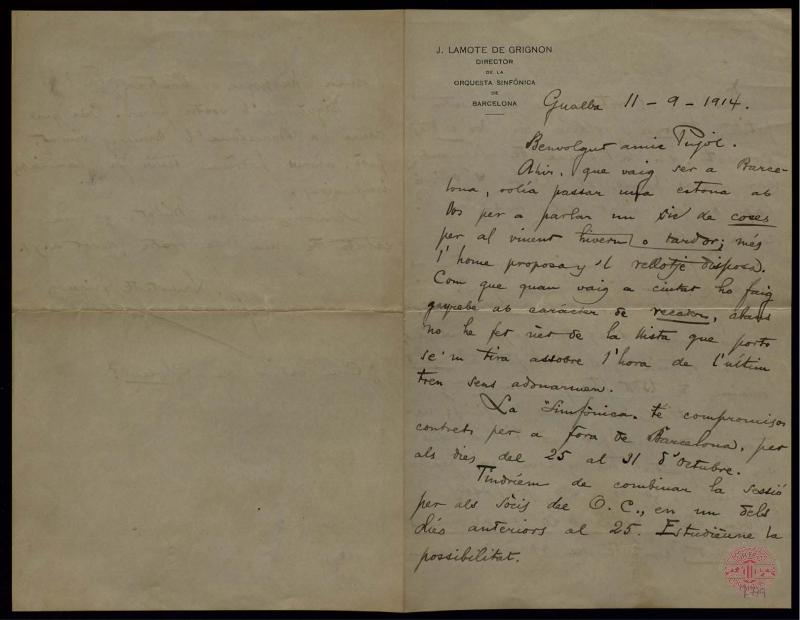 J. LAMOTE DE GRIGNON
DIRECTOR
DE LA
ORQUESTA SINFÓNICA
DE
BARCELONA
Gualba 11-9-1914.
Benvolgut amic Pujol.
Ahir, que vaig ser a Barce-
lona, volía passar una estona ab
Vos per a parlar un xic de coses
per al vinent hivern o tardor; més
l'home proposa y 'l rellotje disposa.
Com que quan vaig a ciutat ho faig
gayrebé ab carácter de recader, abans
no he fet net de la llista que porto
se'm tira assobre l'hora de l'últim
tren sens adonarmen.
La "Simfònica" té compromisos
contrets per a fora de Barcelona, per
als dies del 25 al 31 d'Octubre.
Tindríem de combinar la sessió
per als sòcis del O. C., en un dels
dies anteriors al 25. Estudièune la
possibilitat.